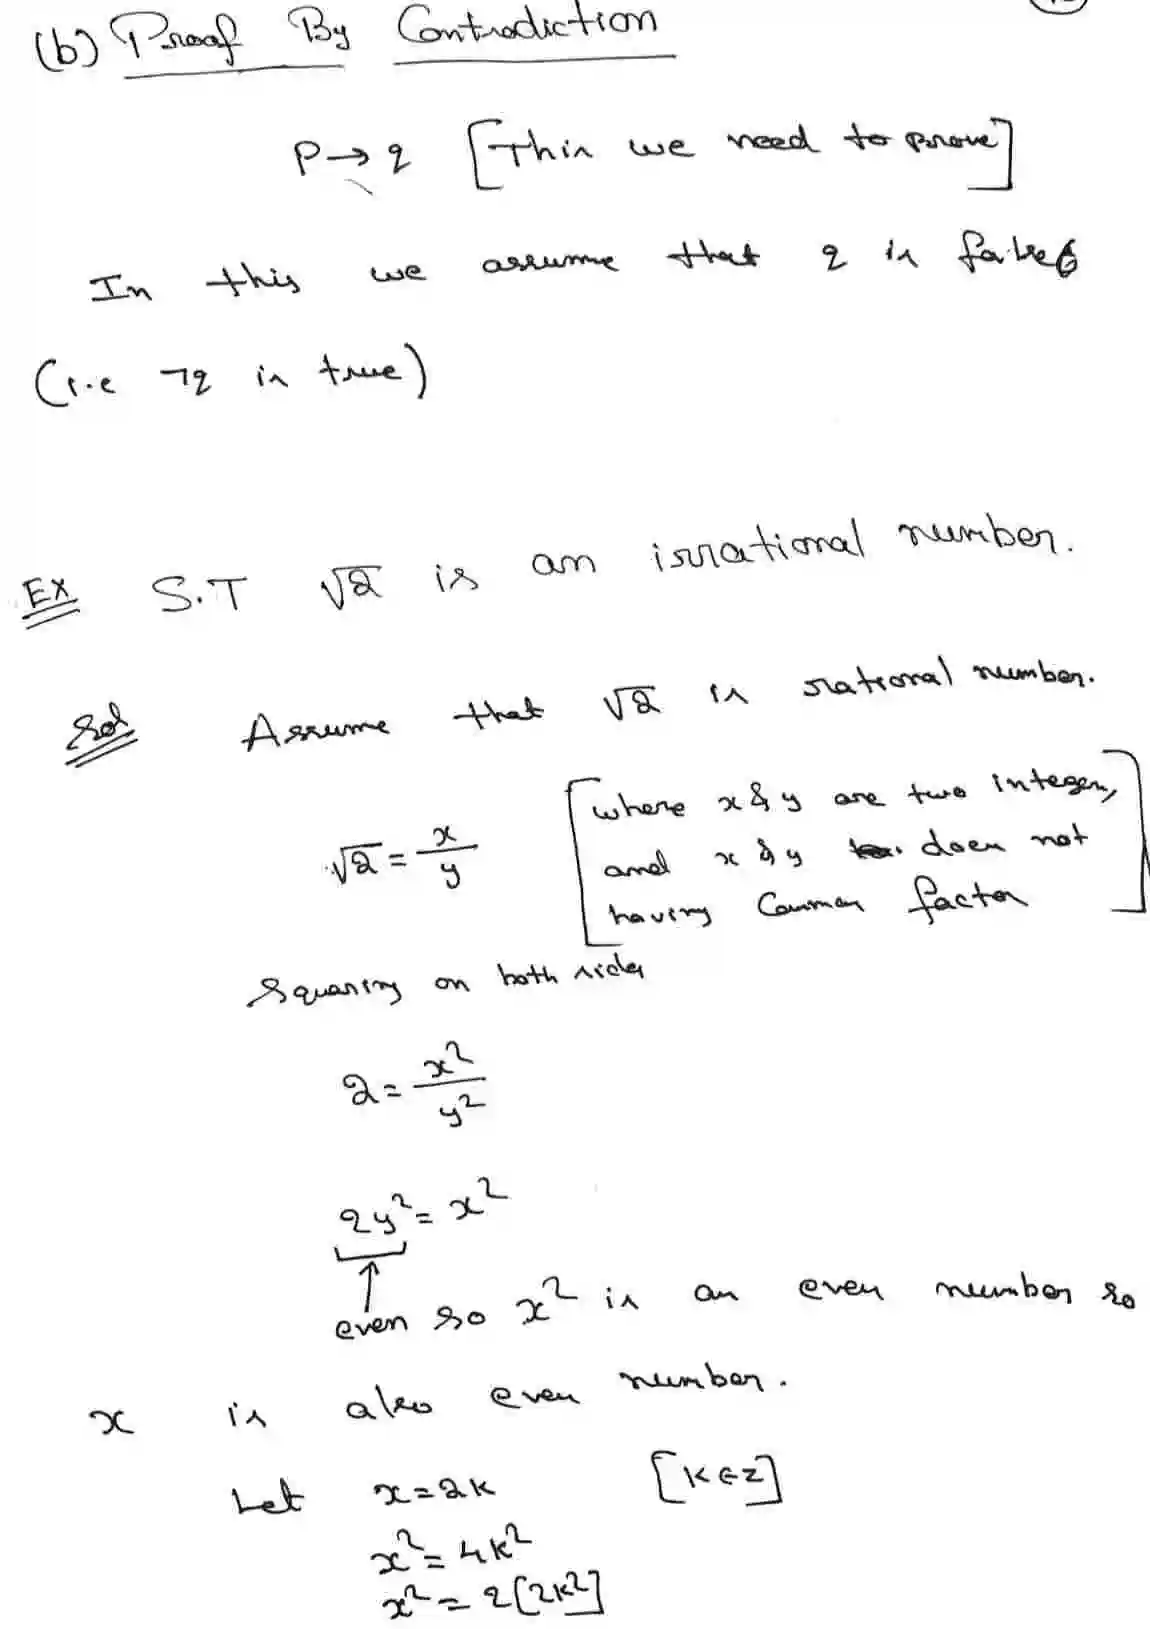 (b) Proof By Contradiction
P→q [This we need to prove]
In this we assume that q is false
(i.e ¬q is true)
EX S.T √2 is an irrational number.
Sol Assume that √2 is rational number.
√2 = x/y [where x & y are two integers,
and x & y does not
having Common factor]
Squaring on both sides
2 = x²/y²
2y² = x²
even so x² is an even number so
x is also even number.
Let x = 2k [k∈z]
x² = 4k²
x² = 2[2k²]